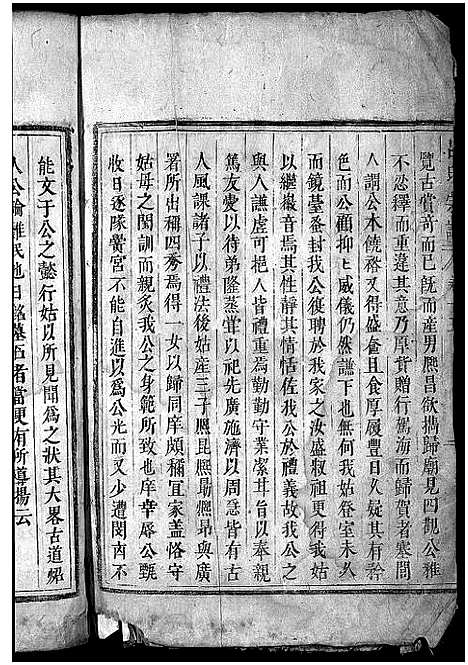 覽古賞奇而已既而產男熙昌欲攜歸廟見四覲公雅
不忍繹而重違其意乃厚貲贈行駕海而歸賀者寒問
人謂公木饒裕今得盛奩且食厚履豐日久疑其有矜
色而公顧抑抑威儀仍然謙下也無何我姑登室未久
而鏡臺蚤封我公復聘於我家之汝盛叔祖而得我姑
以繼嶽音其性靜其情恬佐我公於禮義故我公於
與人謙虛可挹不以富驕禮重焉勤勤守業潔㫖以奉親
篤友愛以待弟隆蒸嘗以祀先廣施濟以周急皆有古
人風課諸子以禮法後姑产三子熙毘熙勗熙昂與廣
署所出稱四秀焉得一女以歸同庠頗稱宜家蓋恪守
姑母之閫訓而親炙我公之身範所致也庠幸辱公甄
收日逐隊黌宮不能自進以為公光而又少遭閔內不
能文于公之懿行姑以所見聞為之狀其大畧古道炤
人公論雖民他日銘墓石者當更有所導揚云